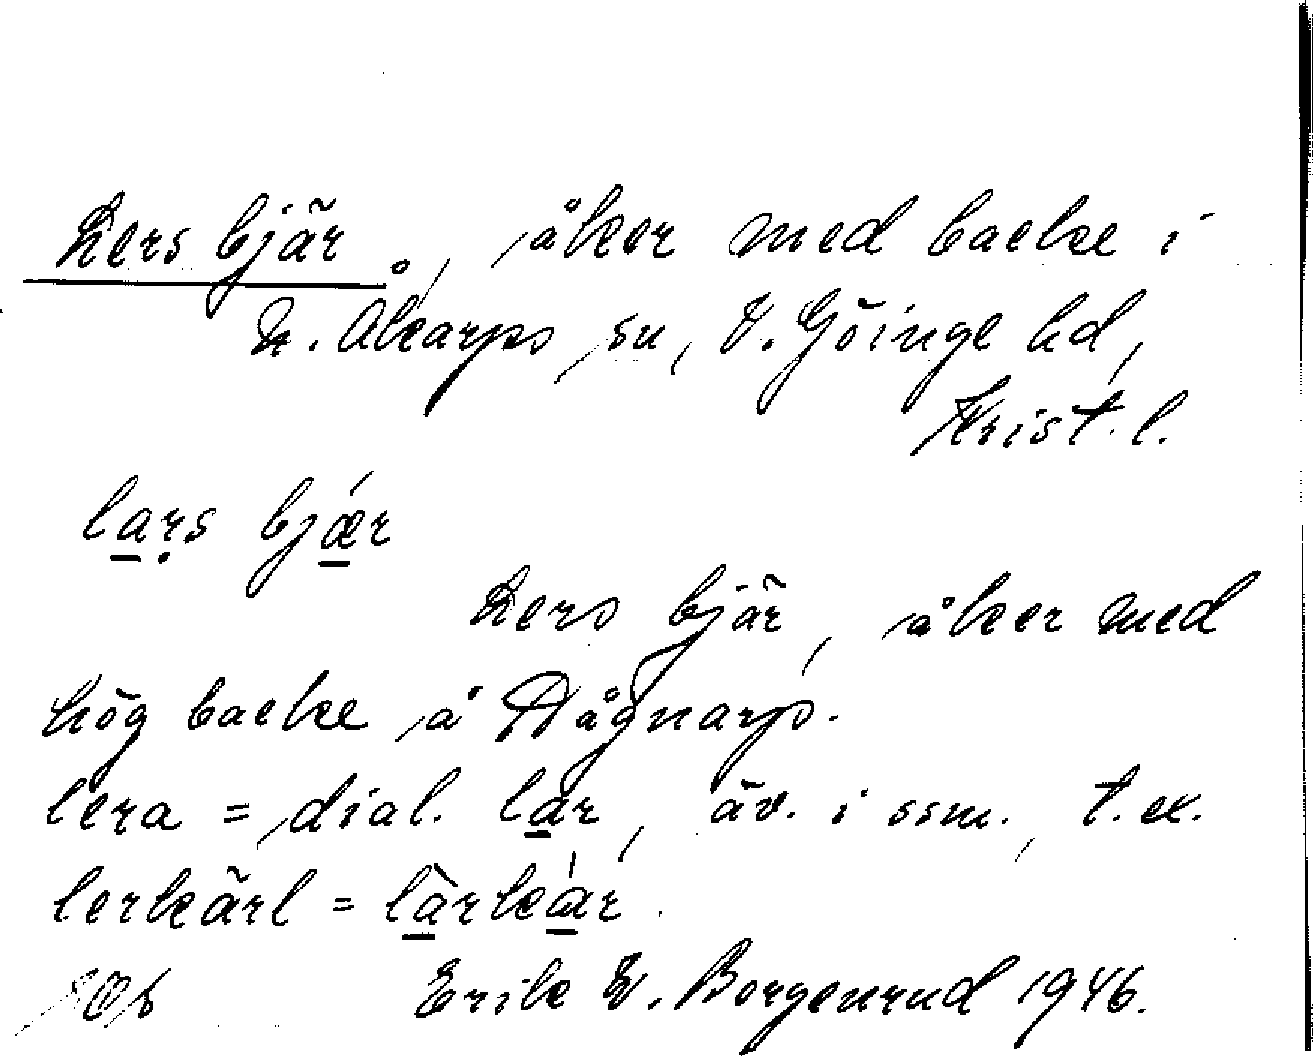 Lers bjär, åker med backe i
N. Åkarps sn, V. Göinge hd,
Krist. l.
lars bjǽr
Lers bjär, åker med
hög backe å Dågnarp.
lera = dial. lar, äv. i ssm., t.ex.
lerkärl = làrkár.
Erik W. Borgenrud 1946.